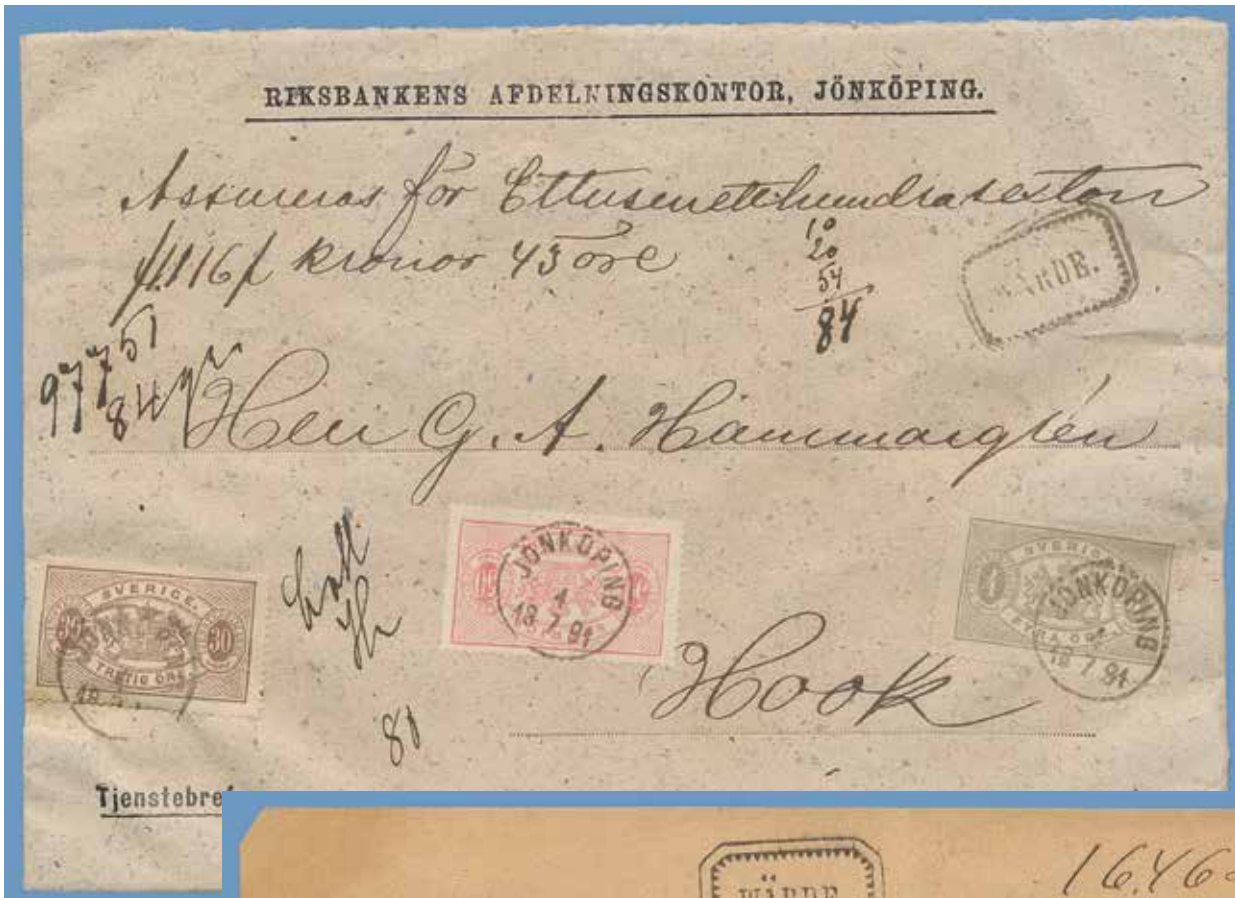 RIKSBANKENS AFDELNINGSKONTOR, JÖNKÖPING.
Assureras för Ettusenetthundrasexton
/1.116/ kronor 43 öre
10
20
54
84
WÄRDE.
97751
84
Herr G. A. Hammargrén
SVERIGE.
30 30
TRETIO ÖRE.
18
JÖNKÖPING
1
18 7 91
SVERIGE.
FYRA ÖRE.
JÖNKÖPING
18 7 91
Hook
81
Tjenstebref
WÄRDE
16.46